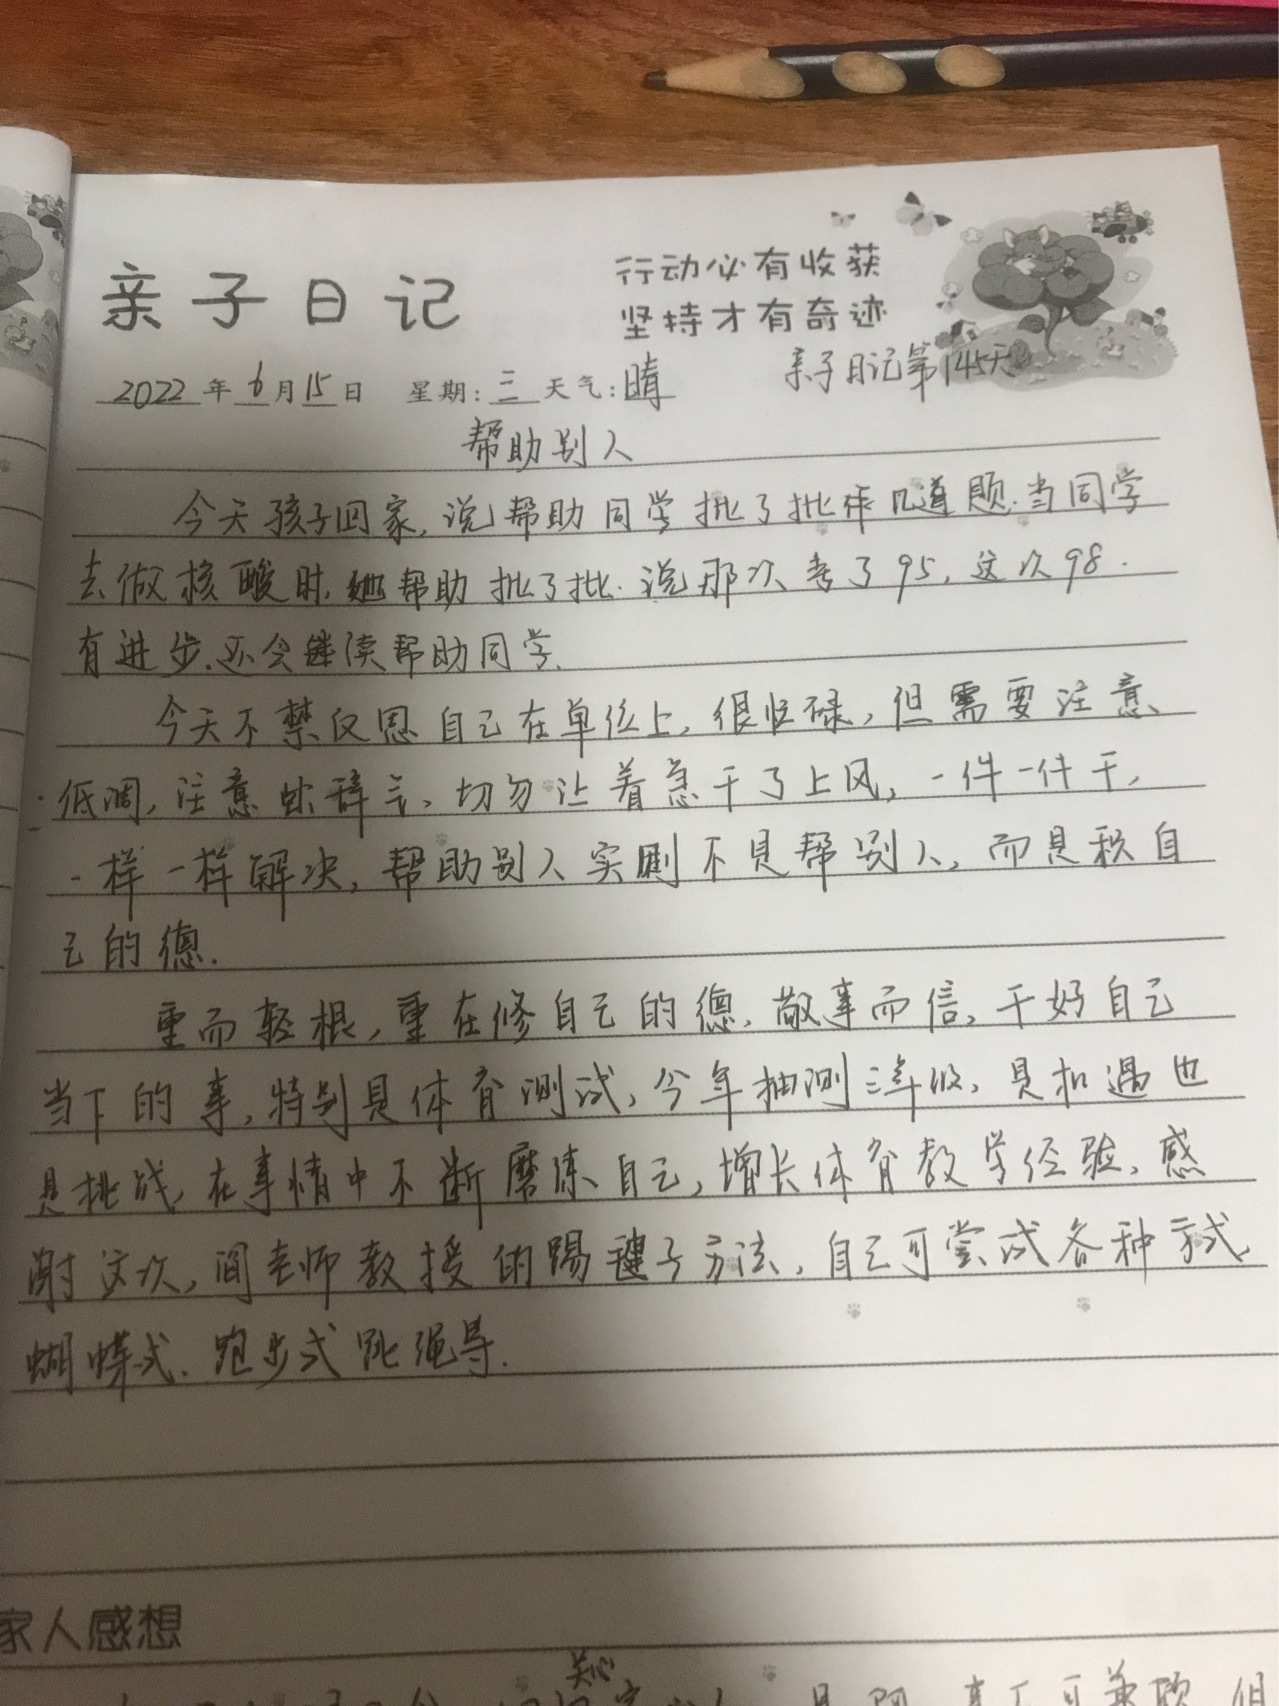 亲子日记
行动必有收获
坚持才有奇迹
亲子日记第145天
2022年6月15日 星期:三 天气:晴
帮助别人
今天孩子回家,说帮助同学批了批作几道题.当同学
去做核酸时,她帮助批了批.说那次考了95,这次98.
有进步.还会继续帮助同学.
今天不禁反思自己在单位上,很忙碌,但需要注意
低调,注意 辞言,切勿让着急干了上风,一件一件干,
一样一样解决,帮助别人实则不是帮别人,而是积自
己的德.
重而轻根,重在修自己的德,敬事而信,干好自己
当下的事,特别是体育测试,今年抽测三年级,是机遇也
是挑战,在事情中不断磨练自己,增长体育教学经验,感
谢这次,闫老师教授的踢毽子方法,自己可尝试各种方式,
蝴蝶式.跑步式跳绳等.
家人感想
关心